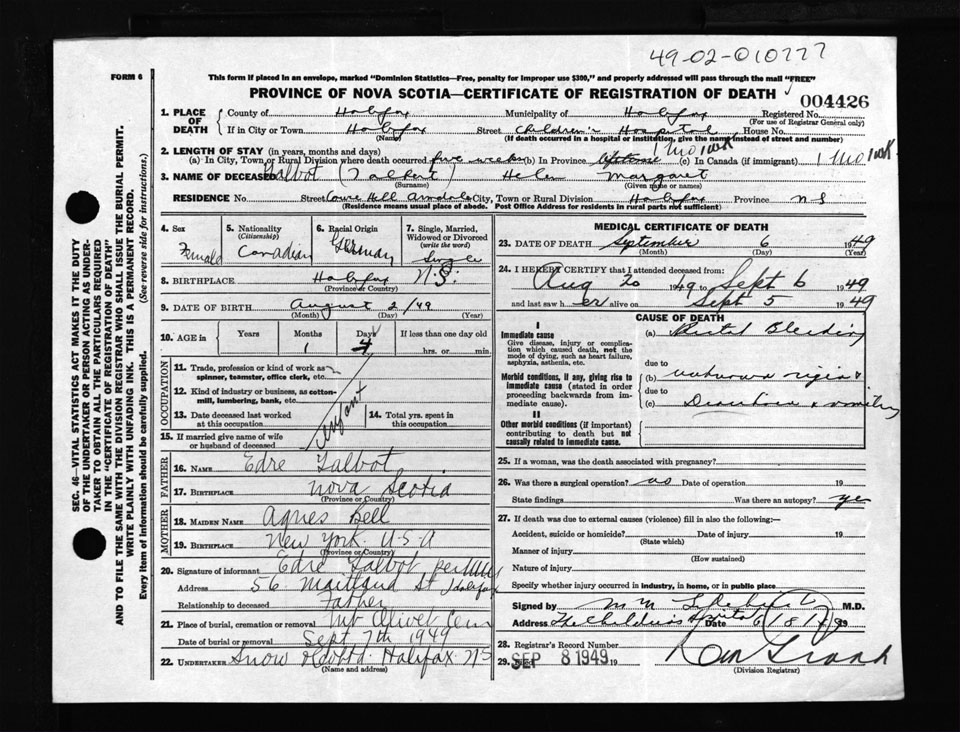 49-02-010777
FORM 6
This form if placed in an envelope, marked "Dominion Statistics—Free, penalty for improper use $300," and properly addressed will pass through the mail "FREE"
PROVINCE OF NOVA SCOTIA—CERTIFICATE OF REGISTRATION OF DEATH
004426
1. PLACE OF DEATH
County of Halifax Municipality of Halifax Registered No.
(For use of Registrar General only)
If in City or Town Halifax Street Children's Hospital House No.
(Name) (If death occurred in a hospital or institution, give the name instead of street and number)
2. LENGTH OF STAY (in years, months and days)
(a) In City, Town or Rural Division where death occurred five weeks (b) In Province 1 mo 1 wk (c) In Canada (if immigrant) 1 mo 1 wk
3. NAME OF DECEASED Talbot (Talbert) Helen Margaret
(Surname) (Given name or names)
RESIDENCE No. Street Cowie Hill Armdale City, Town or Rural Division Halifax Province N S
(Residence means usual place of abode. Post Office Address for residents in rural parts not sufficient)
4. Sex
Female
5. Nationality
(Citizenship)
Canadian
6. Racial Origin
German
7. Single, Married, Widowed or Divorced
(write the word)
Single
8. BIRTHPLACE Halifax N.S.
(Province or Country)
9. DATE OF BIRTH August 2/49
(Month) (Day) (Year)
10. AGE in
Years Months Days If less than one day old
1 4 hrs. or min.
OCCUPATION
11. Trade, profession or kind of work as spinner, teamster, office clerk, etc.
12. Kind of industry or business, as cotton-mill, lumbering, bank, etc.
13. Date deceased last worked at this occupation
14. Total yrs. spent in this occupation
Infant
15. If married give name of wife or husband of deceased
FATHER
16. NAME Edre Talbot
17. BIRTHPLACE Nova Scotia
(Province or Country)
MOTHER
18. MAIDEN NAME Agnes Bell
19. BIRTHPLACE New York U-S-A
(Province or Country)
20. Signature of informant Edre Talbot per
Address 56 Maitland St Halifax
Relationship to deceased Father
21. Place of burial, cremation or removal Mt Olivet Cem
Date of burial or removal Sept 7th 1949
22. UNDERTAKER Snow Halifax NS
(Name and address)
MEDICAL CERTIFICATE OF DEATH
23. DATE OF DEATH September 6 1949
(Month) (Day) (Year)
24. I HEREBY CERTIFY that I attended deceased from:
Aug 20 1949 to Sept 6 1949
and last saw her alive on Sept 5 1949
CAUSE OF DEATH
I
Immediate cause
Give disease, injury or complication which caused death, not the mode of dying, such as heart failure, asphyxia, asthenia, etc.
(a) Rectal Bleeding
due to
Morbid conditions, if any, giving rise to immediate cause (stated in order proceeding backwards from immediate cause).
(b) unknown origin
due to
(c) Diarrhoea & vomiting
II
Other morbid conditions (if important) contributing to death but not causally related to immediate cause.
25. If a woman, was the death associated with pregnancy?
26. Was there a surgical operation? no Date of operation 19
State findings Was there an autopsy? yes
27. If death was due to external causes (violence) fill in also the following:—
Accident, suicide or homicide? Date of injury 19
(State which)
Manner of injury
(How sustained)
Nature of injury
Specify whether injury occurred in industry, in home, or in public place
Signed by M.D.
Address The Childrens Hospital Date 6/8/1949
28. Registrar's Record Number
29. Filed SEP 8 1949 19
(Division Registrar)
SEC. 46—VITAL STATISTICS ACT MAKES IT THE DUTY OF THE UNDERTAKER OR PERSON ACTING AS UNDERTAKER TO OBTAIN ALL THE PARTICULARS REQUIRED IN THE "CERTIFICATE OF REGISTRATION OF DEATH" AND TO FILE THE SAME WITH THE DIVISION REGISTRAR WHO SHALL ISSUE THE BURIAL PERMIT.
WRITE PLAINLY WITH UNFADING INK. THIS IS A PERMANENT RECORD.
Every item of information should be carefully supplied. (See reverse side for instructions.)